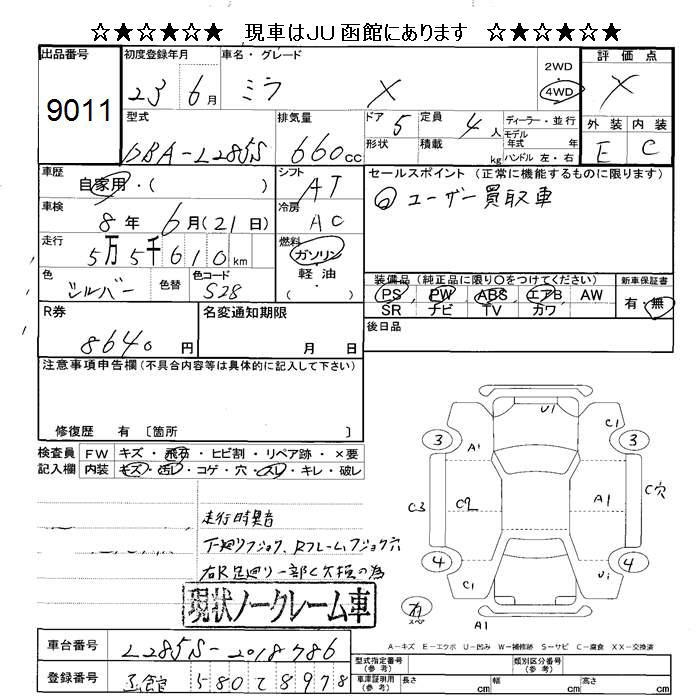 ☆★☆★☆★ 現車はJU函館にあります ☆★☆★☆★
出品番号
9011
初度登録年月
23 6月
車名・グレード
ミラ X
2WD
4WD
評価点
X
外装 内装
E C
型式
DBA-L285S
排気量
660cc
ドア 5
形状
定員 4人
積載 kg
ディーラー・並行
モデル年式 年式
ハンドル 左・右
車歴
自家用・( )
シフト
AT
車検
8年 6月(21日)
冷房
AC
走行
5万5千610km
燃料
ガソリン
軽油
( )
色
シルバー
色替
色コード
S28
セールスポイント (正常に機能するものに限ります)
◎ユーザー買取車
装備品 (純正品に限り○をつけてください)
PS PW ABS エアB AW
SR ナビ TV カワ
新車保証書
有・無
R券
8640円
名変通知期限
月 日
後日品
注意事項申告欄(不具合内容等は具体的に記入して下さい)
修復歴 有 〔箇所 〕
検査員記入欄
FW キズ・飛石・ヒビ割・リペア跡・×要
内装 キズ・汚レ・コゲ・穴・スレ・キレ・破レ
走行時異音
下廻りフショク、Rフレームフショク穴
右R足廻り一部欠損の為
現状ノークレーム車
U1
C1
3
A1
3
C3
C2
A1
C穴
4
4
C1
U1
有
スペア
A1
A-キズ E-エクボ U-凹み W-補修跡 S-サビ C-腐食 XX-交換済
車台番号
L285S-2018786
登録番号
函館 580 て 8978
型式指定番号(参考)
類別区分番号(参考)
車庫証明用(参考)
長さ cm
幅 cm
高さ cm